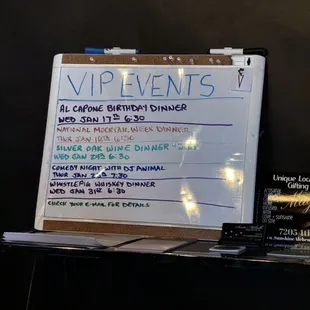 VIP EVENTS
AL CAPONE BIRTHDAY DINNER
WED JAN 17th 6:30
NATIONAL MOCKTAIL WEEK DINNER
THUR JAN 18th 6:30
SILVER OAK WINE DINNER
WED JAN 24th 6:30
COMEDY NIGHT WITH DJ ANIMAL
THUR JAN 7:30
WHISTLEPIG WHISKEY DINNER
WED JAN 31st 6:30
CHECK YOUR E-MAIL FOR DETAILS
Unique
Gifting
7205
Sunshine